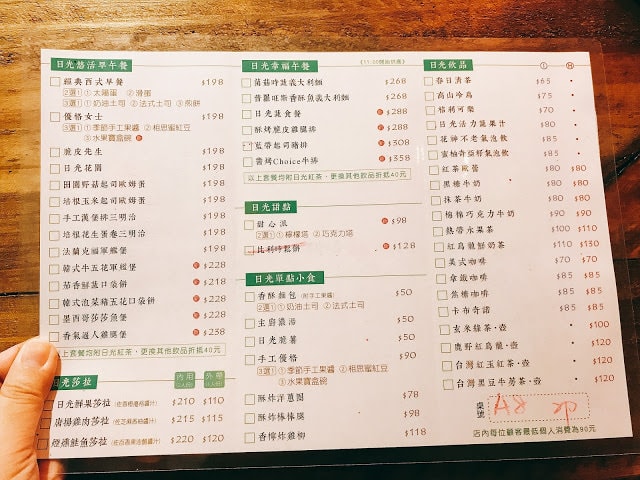 日光慢活早午餐
經典西式早餐 $198
2選1 ①太陽蛋 ②滑蛋
3選1 ①奶油土司 ②法式土司 ③煎餅
優格女士 $198
3選1 ①季節手工果醬 ②相思蜜紅豆
③水果寶盒碗
脆皮先生 $198
日光花園 $198
田園野菇起司歐姆蛋 $198
培根玉米起司歐姆蛋 $198
手工漢堡排三明治 $198
培根花生蛋捲三明治 $198
法蘭克福軍艦堡 $198
韓式牛五花軍艦堡 $228
茄香鮮蔬口袋餅 $198
韓式泡菜豬五花口袋餅 $218
墨西哥莎莎魚堡 $228
香氣逼人雞腿堡 $238
以上套餐均附日光紅茶，更換其他飲品折抵40元
日光莎拉 內用 外帶
日光鮮果莎拉 $210 $110
唐揚雞肉莎拉 $215 $115
煙燻鮭魚莎拉 $220 $120
日光幸福午餐 (11:00開始供應)
菌菇時蔬義大利麵 $268
普羅旺斯香酥魚義大利麵 $268
日光蔬食餐 $288
酥烤脆皮雞腿排 $288
藍帶起司豬排 $308
醬烤Choice牛排 $358
以上套餐均附日光紅茶，更換其他飲品折抵40元
日光甜點
甜心派 $98
2選1 ①檸檬塔 ②巧克力塔
比利時鬆餅 $128
日光單點小食
香酥麵包 (附手工果醬) $50
2選1 ①奶油土司 ②法式土司
主廚濃湯 $50
日光脆薯 $50
手工優格 $90
3選1 ①季節手工果醬 ②相思蜜紅豆
③水果寶盒碗
酥炸洋蔥圈 $78
酥炸棒棒腿 $98
香檸炸雞柳 $118
日光飲品
春日清茶 $65
高山冷烏 $75
桔將可樂 $70
日光活力蔬果汁 $80
花神不老氣泡飲 $80
蜜柚奇亞籽氣泡飲 $80
紅茶歐蕾 $80 $80
黑糖牛奶 $80 $80
抹茶牛奶 $80 $80
榛棉巧克力牛奶 $90 $90
熱帶水果茶 $100 $100
紅烏龍鮮奶茶 $110 $130
美式咖啡 $70 $70
拿鐵咖啡 $85 $85
焦糖咖啡 $85 $85
卡布奇諾 $85 $85
玄米綠茶·壺 $100
鹿野紅烏龍·壺 $120
台灣紅玉紅茶·壺 $120
台灣黑豆牛蒡茶·壺 $120
桌號 A8 2p
店內每位顧客最低個人消費為90元